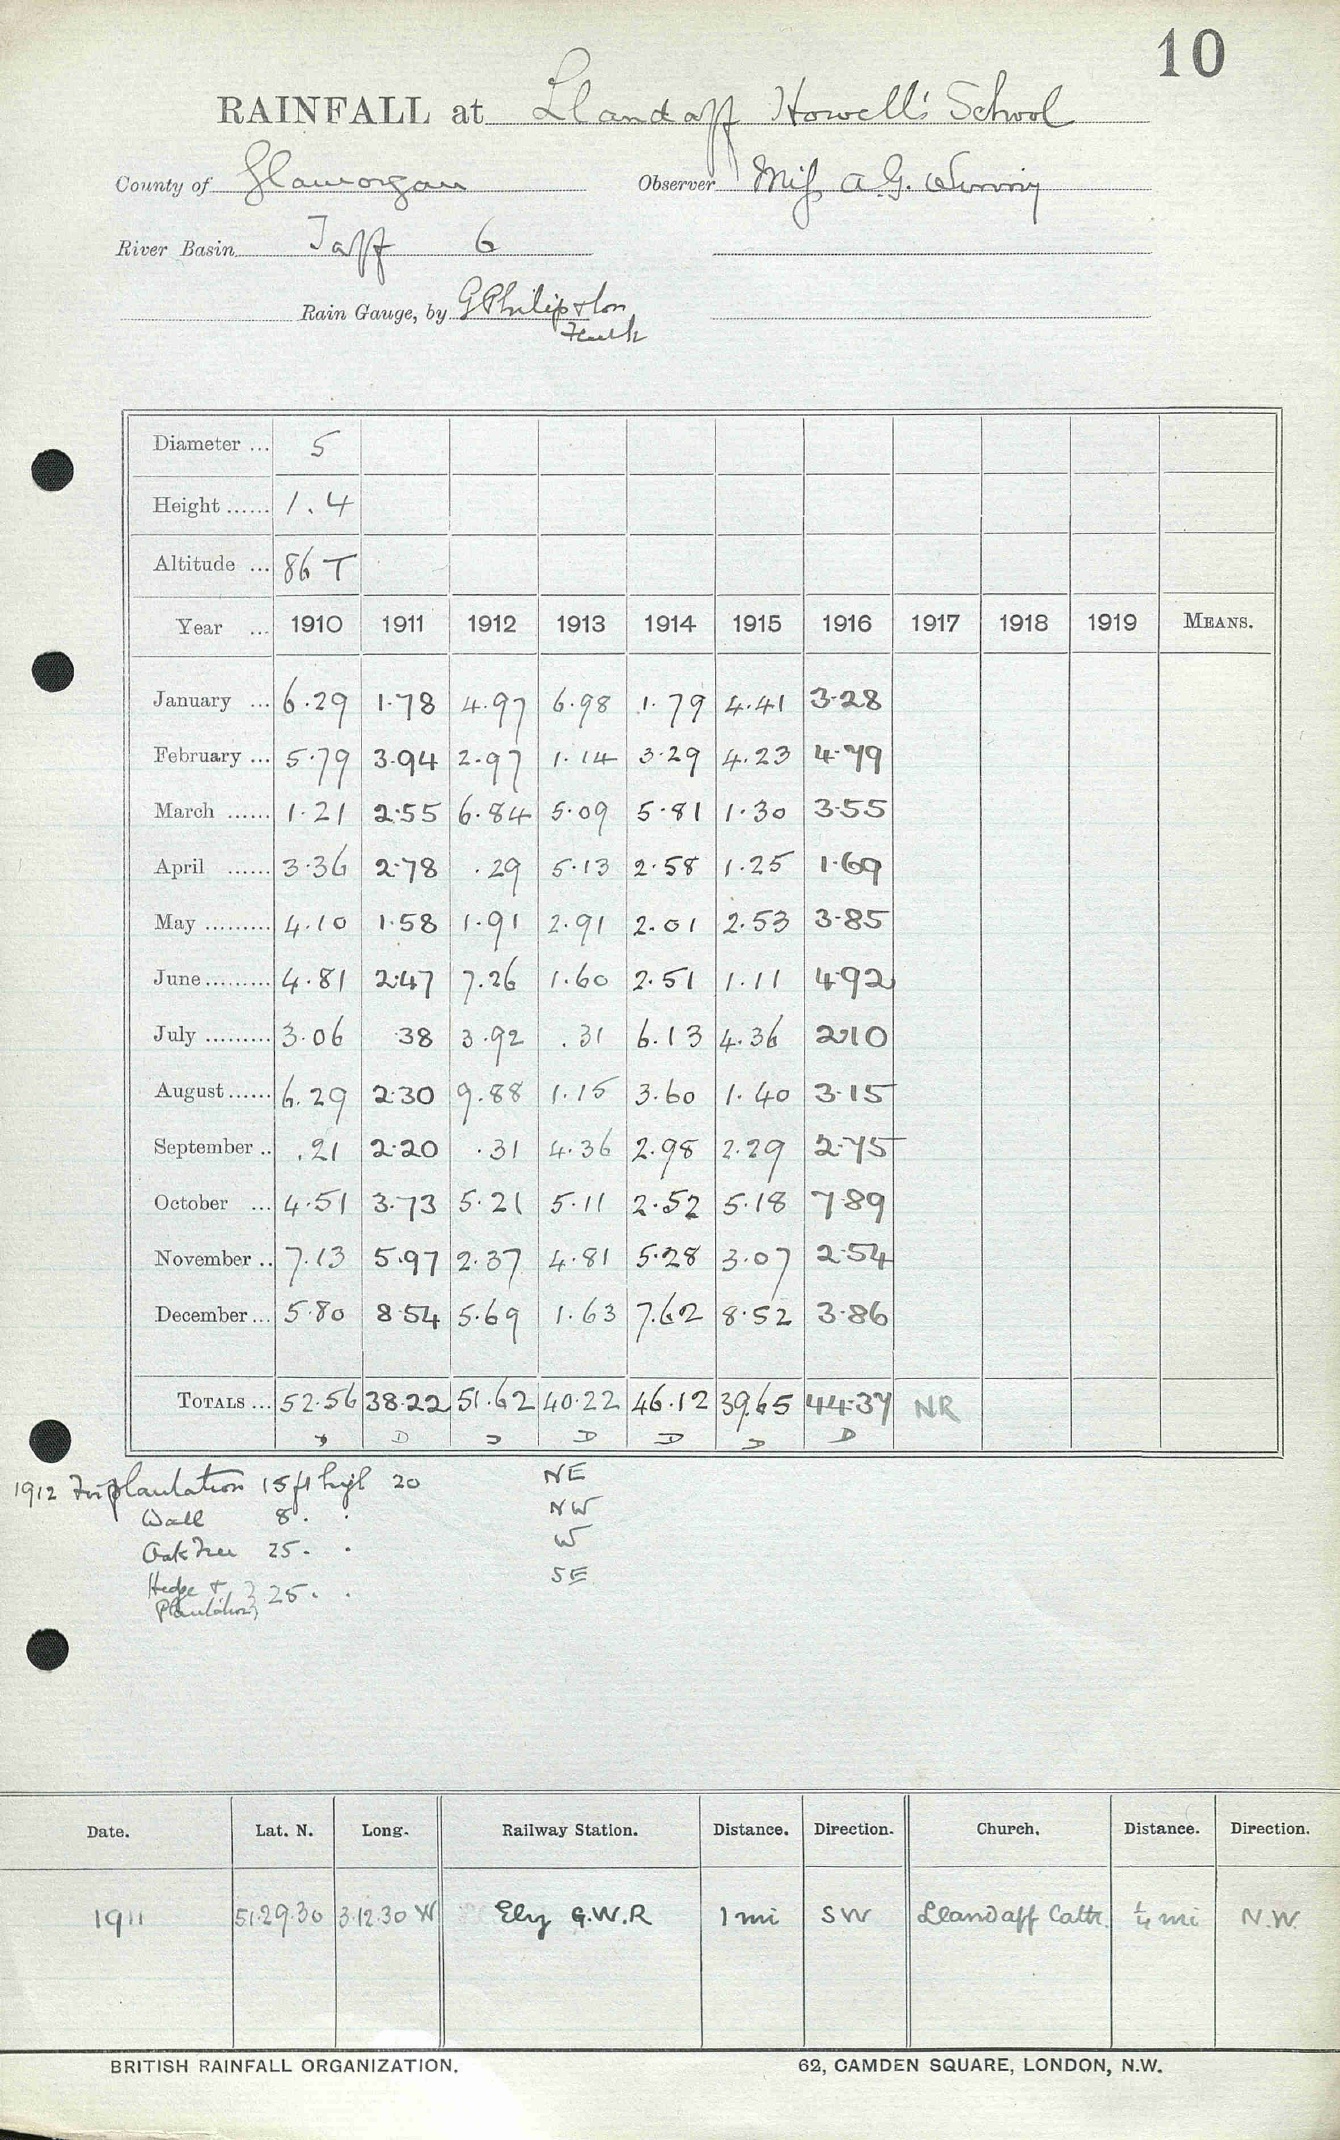 10
RAINFALL at Llandaff Howell's School
County of Glamorgan Observer Miss A.G.
River Basin Taff 6
Rain Gauge, by G Philip & Son
Diameter ... 5
Height ...... 1.4
Altitude ... 86 T
Year ... 1910 1911 1912 1913 1914 1915 1916 1917 1918 1919 MEANS.
January ... 6.29 1.78 4.97 6.98 1.79 4.41 3.28
February ... 5.79 3.94 2.97 1.14 3.29 4.23 4.79
March ...... 1.21 2.55 6.84 5.09 5.81 1.30 3.55
April ...... 3.36 2.78 .29 5.13 2.58 1.25 1.69
May ......... 4.10 1.58 1.91 2.91 2.01 2.53 3.85
June ......... 4.81 2.47 7.26 1.60 2.51 1.11 4.92
July ......... 3.06 .38 3.92 .31 6.13 4.36 2.10
August ...... 6.29 2.30 9.88 1.15 3.60 1.40 3.15
September .. .21 2.20 .31 4.36 2.98 2.29 2.75
October ... 4.51 3.73 5.21 5.11 2.52 5.18 7.89
November .. 7.13 5.97 2.37 4.81 5.28 3.07 2.54
December ... 5.80 8.54 5.69 1.63 7.62 8.52 3.86
TOTALS ... 52.56 38.22 51.62 40.22 46.12 39.65 44.37 NR
D D D D D D
1912 Fir plantation 15 ft high 20 NE
Wall 8 . . NW
Oak Tree 25 . . W
Hedge & Plantation } 25 . . SE
Date. Lat. N. Long. Railway Station. Distance. Direction. Church. Distance. Direction.
1911 51.29.30 3.12.30 W Ely G.W.R 1 mi SW Llandaff Cath. ¼ mi N.W.
BRITISH RAINFALL ORGANIZATION. 62, CAMDEN SQUARE, LONDON, N.W.